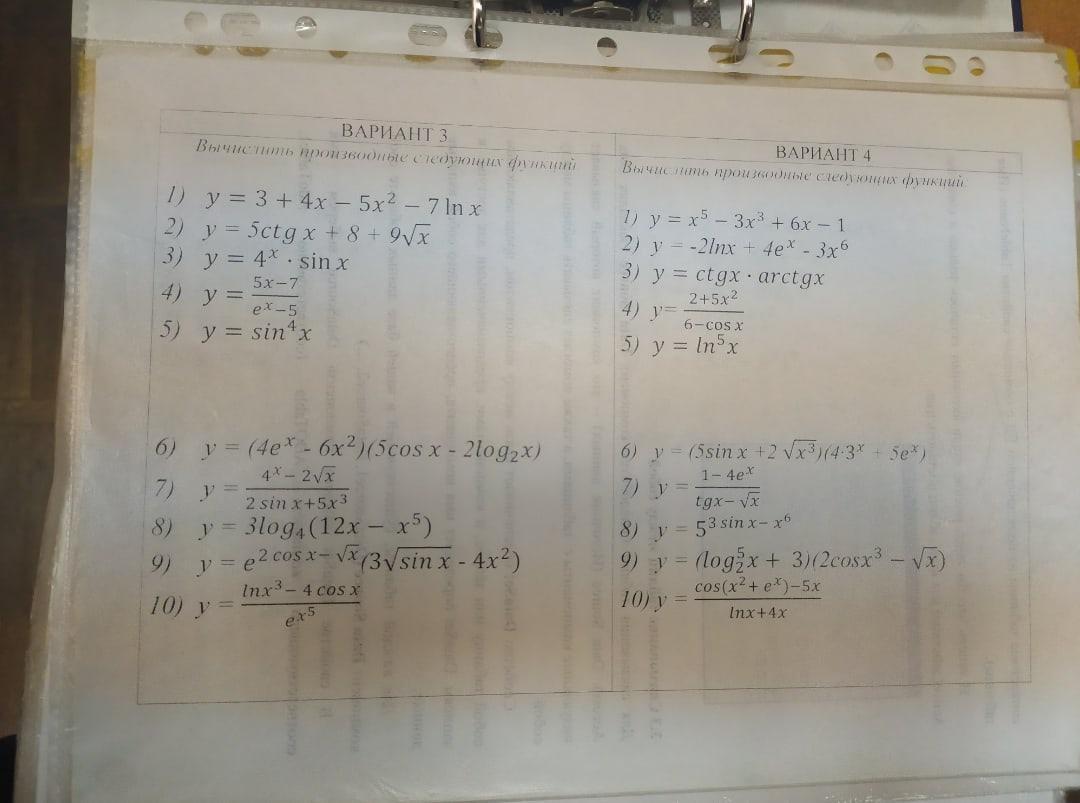 ВАРИАНТ 3
Вычислить производные следующих функций
1) y = 3 + 4x − 5x² − 7 ln x
2) y = 5ctg x + 8 + 9√x
3) y = 4ˣ · sin x
4) y = (5x−7)/(eˣ−5)
5) y = sin⁴x
6) y = (4eˣ - 6x²)(5cos x - 2log₂x)
7) y = (4ˣ − 2√x)/(2 sin x+5x³)
8) y = 3log₄(12x − x⁵)
9) y = e^(2 cos x−√x)(3√(sin x) - 4x²)
10) y = (lnx³ − 4 cos x)/(e^(x⁵))
ВАРИАНТ 4
Вычислить производные следующих функций
1) y = x⁵ − 3x³ + 6x − 1
2) y = -2lnx + 4eˣ - 3x⁶
3) y = ctgx · arctgx
4) y = (2+5x²)/(6−cos x)
5) y = ln⁵x
6) y = (5sin x +2√(x³))(4·3ˣ + 5eˣ)
7) y = (1− 4eˣ)/(tgx− √x)
8) y = 5^(3 sin x− x⁶)
9) y = (log₂⁵x + 3)(2cosx³ − √x)
10) y = (cos(x²+ eˣ)−5x)/(lnx+4x)